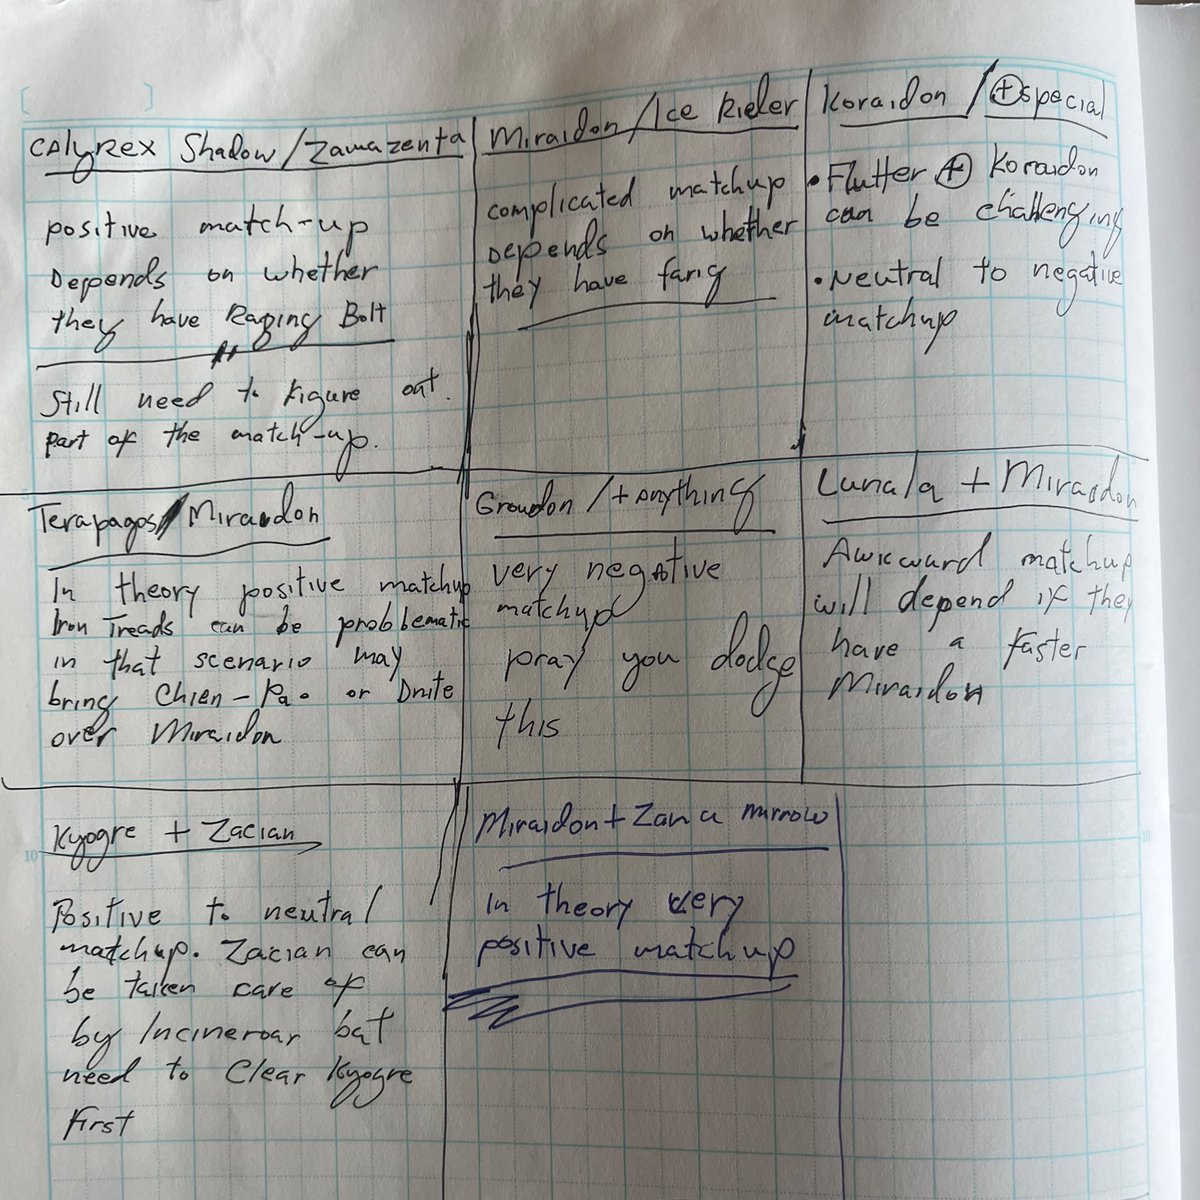 Calyrex Shadow/Zamazenta
positive match-up
Depends on whether
they have Raging Bolt
Still need to figure out
part of the match-up.
Miraidon/Ice Rider
complicated matchup
Depends on whether
they have farig
Koraidon / + special
• Flutter + Koraidon
can be challenging
• Neutral to negative
matchup
Terapagos/Miraidon
In theory positive matchup
Iron Treads can be problematic
in that scenario may
bring Chien-Pao or Dnite
over Miraidon
Groudon /+anything
very negative
matchup
pray you dodge
this
Lunala + Miraidon
Awkward matchup
will depend if they
have a faster
Miraidon
Kyogre + Zacian
Positive to neutral
matchup. Zacian can
be taken care of
by Incineroar but
need to clear Kyogre
first
Miraidon+Zama mirrow
In theory very
positive matchup
10
10